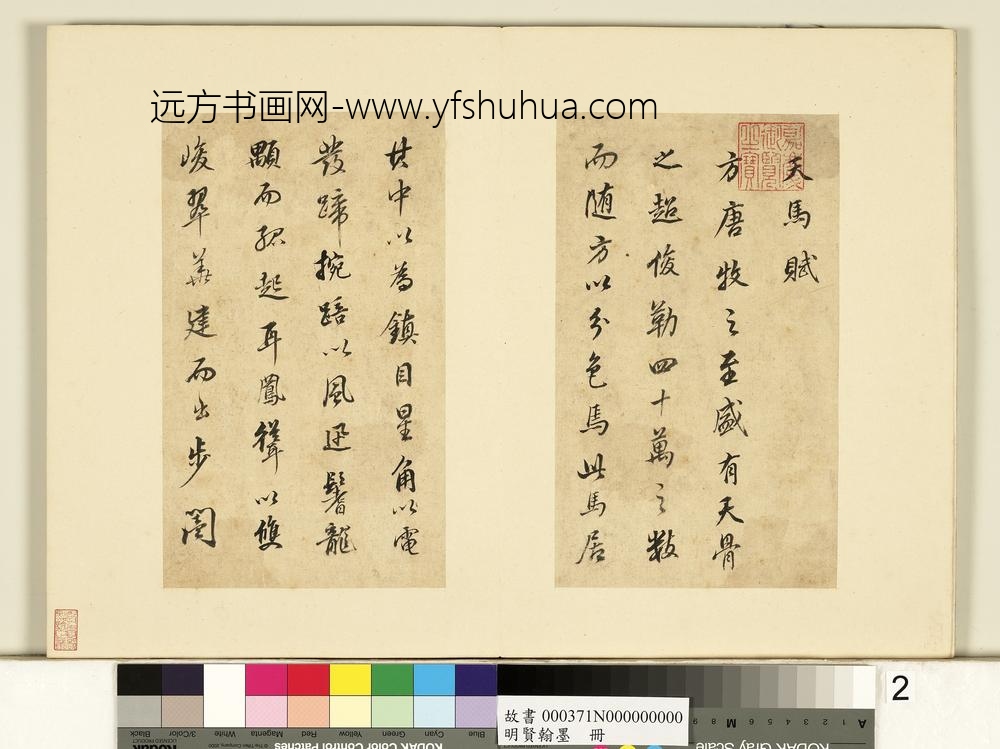 远方书画网-www.yfshuhua.com
天馬賦
方唐牧之至盛有天骨
之超俊勒四十萬之數
而随方以分色馬此馬居
其中以為鎮目星角以電
發蹄椀踣以風迅鬐龍
顒而孤起耳鳳聳以雙
峻翠華建而出步閶
嘉慶御覽之寶
2
故書 000371N000000000
明賢翰墨 冊
Black
3/Color
White
Magenta
Red
Yellow
Green
Cyan
Blue
Kodak
KODAK Color Control Patches
KODAK Gray Scale
A 1 2 3 4 5 6 M 8 9